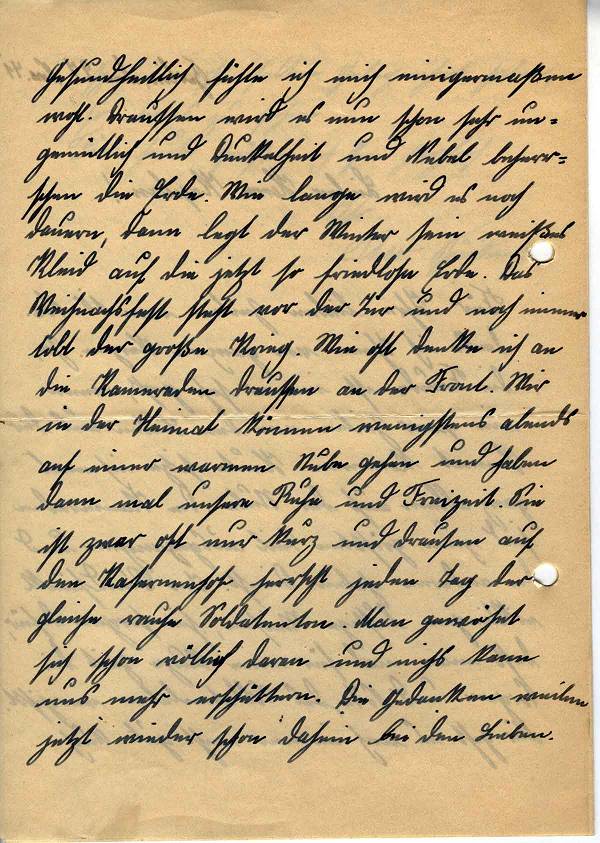 Gesundheitlich fühle ich mich einigermaßen
wohl. Draussen wird es nun schon sehr un=
gemütlich und Dunkelheit und Nebel beherr=
schen die Erde. Wie lange wird es noch
dauern, dann legt der Winter sein weißes
Kleid auf die jetzt so friedlose Erde. Das
Weihnachtsfest steht vor der Tür und noch immer
tobt der große Krieg. Wie oft denke ich an
die Kameraden draußen an der Front. Wir
in der Heimat können wenigstens abends
auf einer warmen Stube gehen und haben
dann mal unsere Ruhe und Freizeit. Sie
ist zwar oft nur kurz und draußen auf
den Kasernenhof herrscht jeden Tag der
gleiche rauhe Soldatenton. Man gewöhnt
sich schon völlich daran und nichts kann
uns mehr erschüttern. Die Gedanken weilen
jetzt wieder schon daheim bei den Lieben.